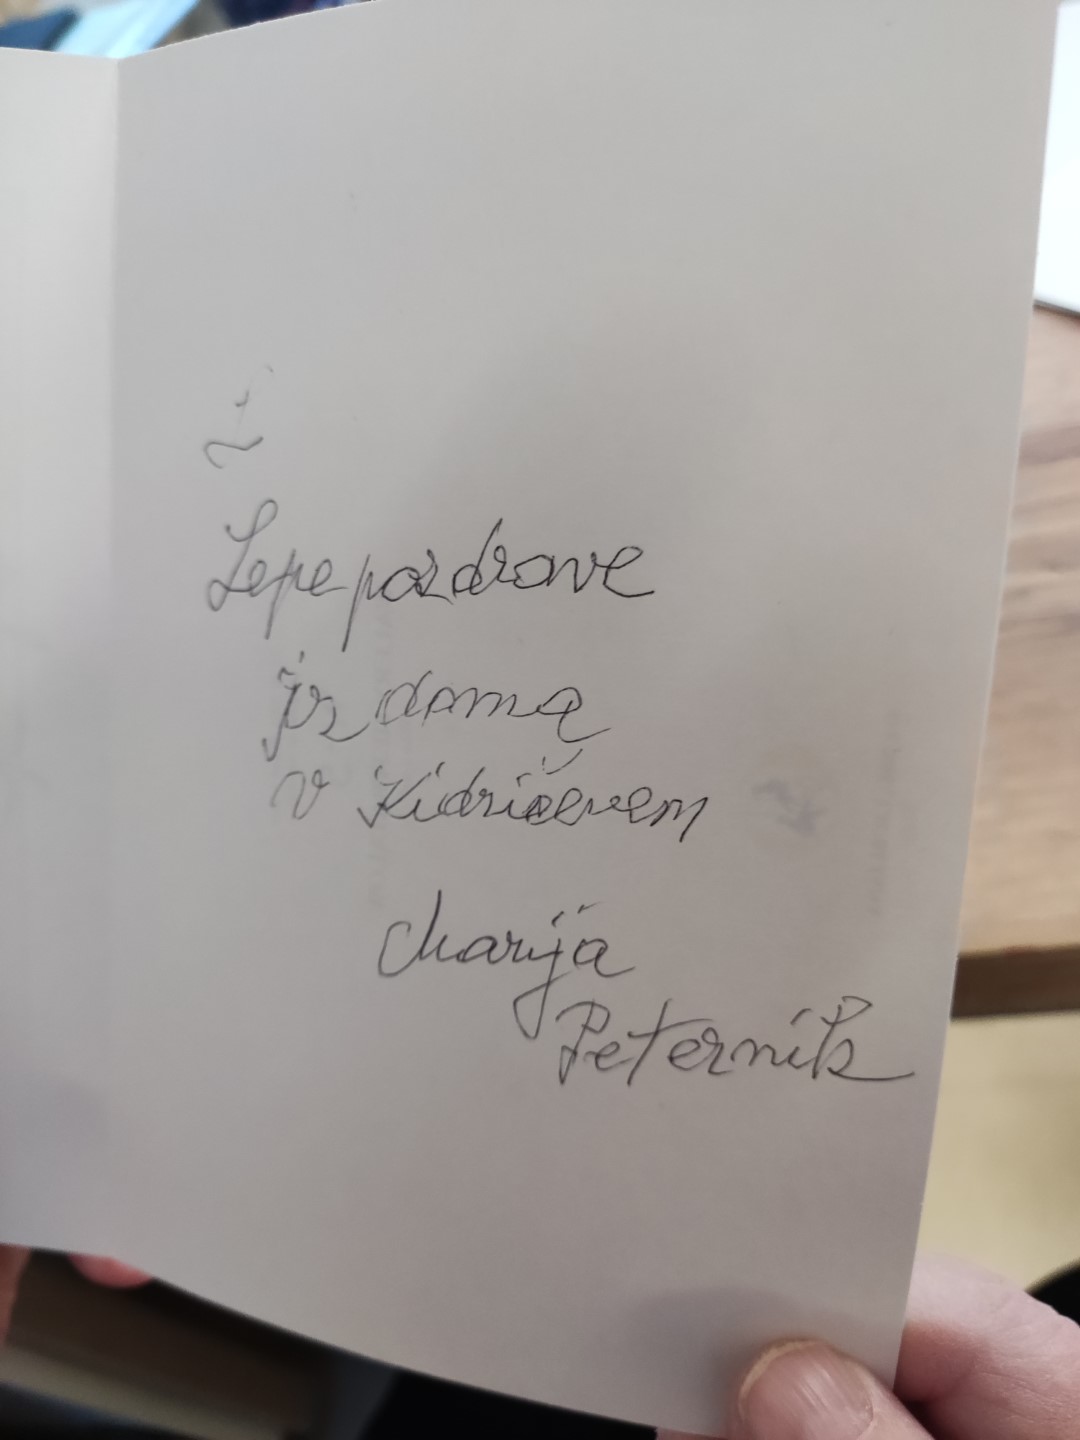 Lepe pozdrave
iz doma
v Kidričevem
Marija
Peternik